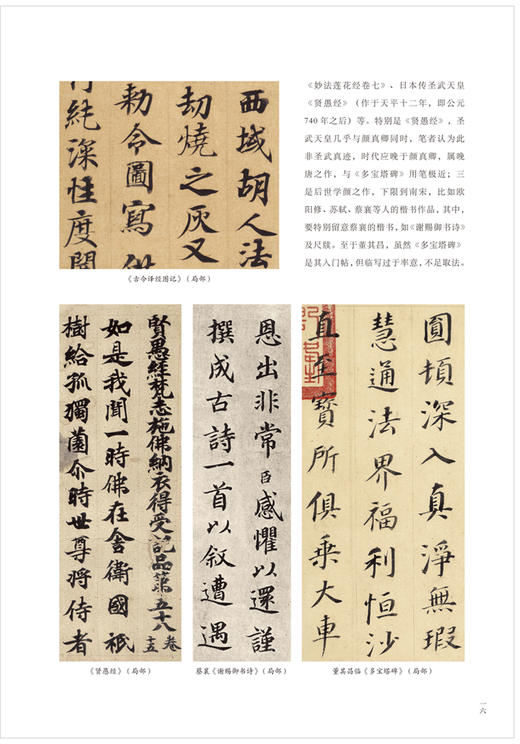 西域胡人法
劫燒之灰又
勅令圖寫供
純深性度
《古今译经图记》(局部)
《妙法莲花经卷七》、日本传圣武天皇
《贤愚经》(作于天平十二年，即公元
740 年之后)等。特别是《贤愚经》，圣
武天皇几乎与颜真卿同时，笔者认为此
非圣武真迹，时代应晚于颜真卿，属晚
唐之作，与《多宝塔碑》用笔极近；三
是后世学颜之作，下限到南宋，比如欧
阳修、苏轼、蔡襄等人的楷书作品，其中，
要特别留意蔡襄的楷书，如《谢赐御书诗》
及尺牍。至于董其昌，虽然《多宝塔碑》
是其入门帖，但临写过于率意，不足取法。
賢愚經梵志施佛納衣得受記品第五十八 卷十五
如是我聞一時佛在舍衛國祇
樹給孤獨薗尒時世尊將侍者
《贤愚经》(局部)
恩出非常臣感懼以還謹
撰成古詩一首以叙遭遇
蔡襄《谢赐御书诗》(局部)
圓頓深入真淨無瑕
慧通法界福利恒沙
直至寶所俱乘大車
董其昌临《多宝塔碑》(局部)
一六